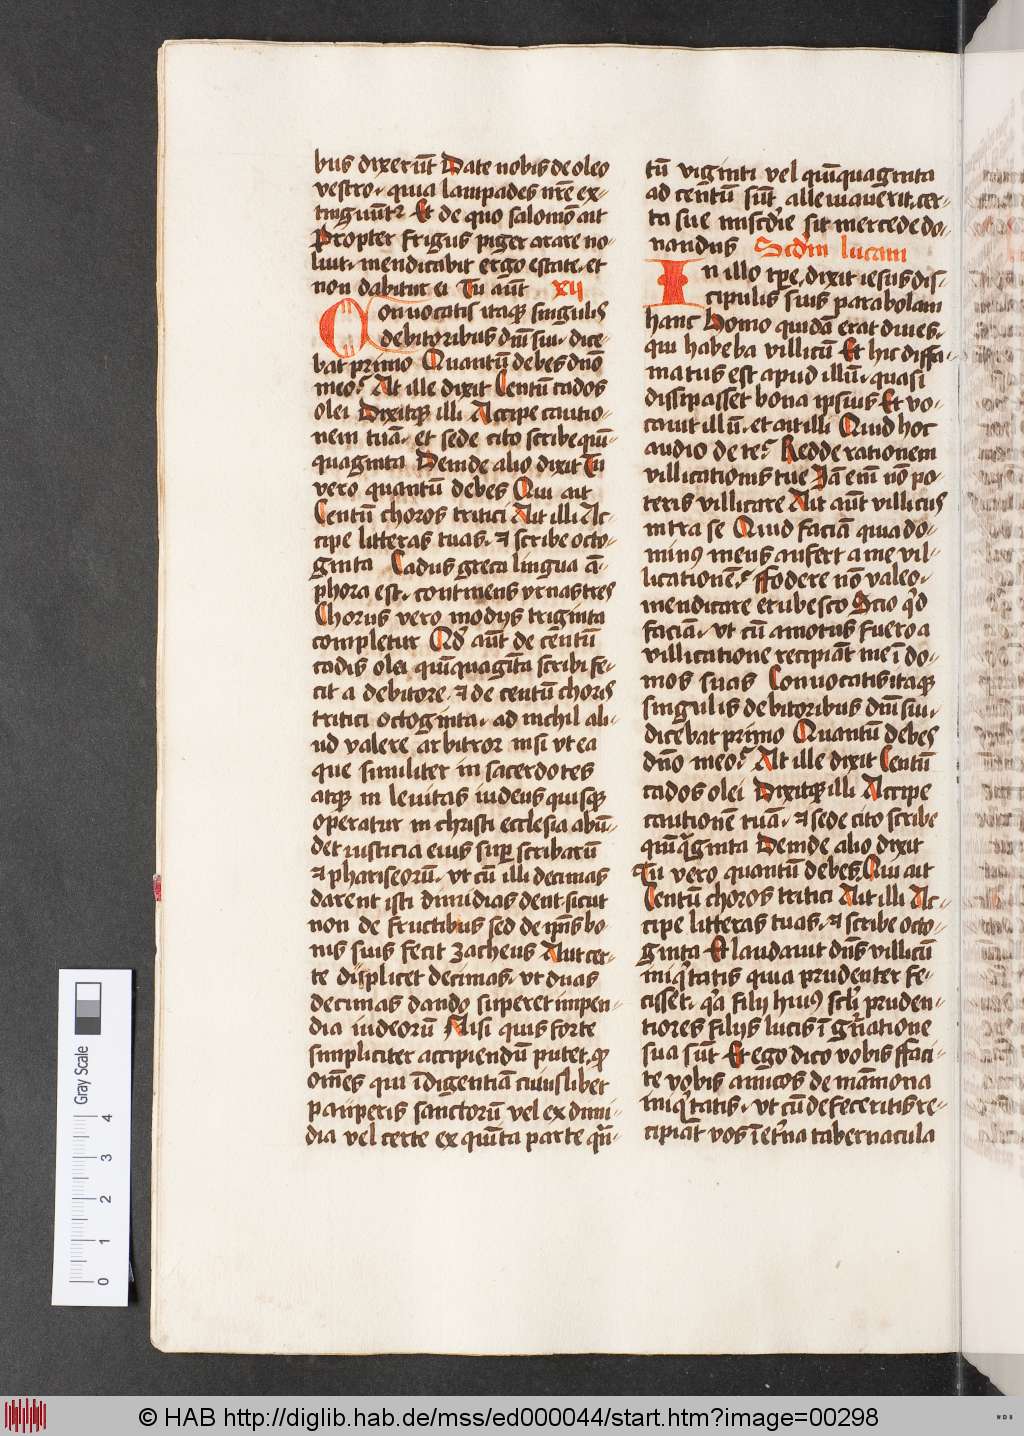 bus dixerūt Date nobis de oleo
vestro· quia lampades nr̄e ex-
tinguūt᷑ Et de quo salomō ait
Propter frigus piger arare no-
luit· mendicabit ergo estate· et
non dabitur ei Tu aūt xij
Conuocatis itaqꝫ singulis
debitoribus dn̄i sui· dice-
bat primo Quantū debes dn̄o
meo? At ille dixit Centū cados
olei Dixitqꝫ illi Accipe cautio-
nem tuā· et sede cito scribe quī-
quaginta Deinde alio dixit Tu
vero quantū debes Qui ait
Centū choros tritici Ait illi Ac-
cipe litteras tuas· ⁊ scribe octo-
ginta Cadus greca lingua ā-
phora est· continens vrnas tres
Chorus vero modijs triginta
completur Qd̄ aūt de cētū
cadis olei quīquagīta scribi fe-
cit a debitore· ⁊ de centū choris
tritici octoginta· ad nichil ali-
ud valere arbitror nisi vt ea
que similiter in sacerdotes
atqꝫ in leuitas iudeus quisqꝫ
operatur in christi ecclesia abū-
det iusticia eius suꝑ scribarū
⁊ phariseorū· vt cū illi decimas
darent isti dimidias dent· sicut
non de fructibus sed de ip̄is bo
nis suis fecit zacheus Aut cer-
te displicet decimas· vt duas
decimas dando superet impen-
dia iudeorū Nisi quis forte
simpliciter accipiendū putet· ꝙ
om̄es qui īdigentiā cuiuslibet
pauperis sanctorū vel ex dimi-
dia vel certe ex quīta parte
tū viginti vel quīquaginta
ad centū sūt alleuauerit· cer-
ta sue mis̄cdie sit mercede do-
nandus Scd̄m lucam
In illo tp̄e· dixit iesus dis-
cipulis suis parabolam
hanc Homo quidā erat diues·
qui habeba villicū Et hic diffa-
matus est apud illū· quasi
dissipasset bona ipsius Et vo-
cauit illū· et ait illi Quid hoc
audio de te? Redde rationem
villicationis tue Jā em̄ nō po-
teris villicare Ait aūt villicus
intra se Quid faciā quia do-
min᷒ meus aufert a me vil-
licationē? ffodere nō valeo·
mendicare erubesco Scio qd̄
faciā· vt cū amotus fuero a
villicatione recipiāt me ī do-
mos suas Conuocatis itaqꝫ
singulis debitoribus dn̄i sui·
dicebat primo Quantū debes
dn̄o meo? At ille dixit Centū
cados olei Dixitqꝫ illi Accipe
cautionē tuā· ⁊ sede cito scribe
quīqᷓginta Deinde alio dixit
Tu vero quantū debes Qui ait
Centū choros tritici Ait illi Ac-
cipe litteras tuas· ⁊ scribe octo-
ginta Et laudauit dn̄s villicū
iniqͥtatis quia prudenter fe-
cisset· qᷓa filij hui᷒ sc̄li pruden-
tiores filijs lucis ī gn̄atione
sua sūt Et ego dico vobis ffaci-
te vobis amicos de māmona
iniqͥtatis· vt cū defeceritis re-
cipiāt vos ī et͛na tabernacula
Gray Scale
0 1 2 3 4
© HAB http://diglib.hab.de/mss/ed000044/start.htm?image=00298